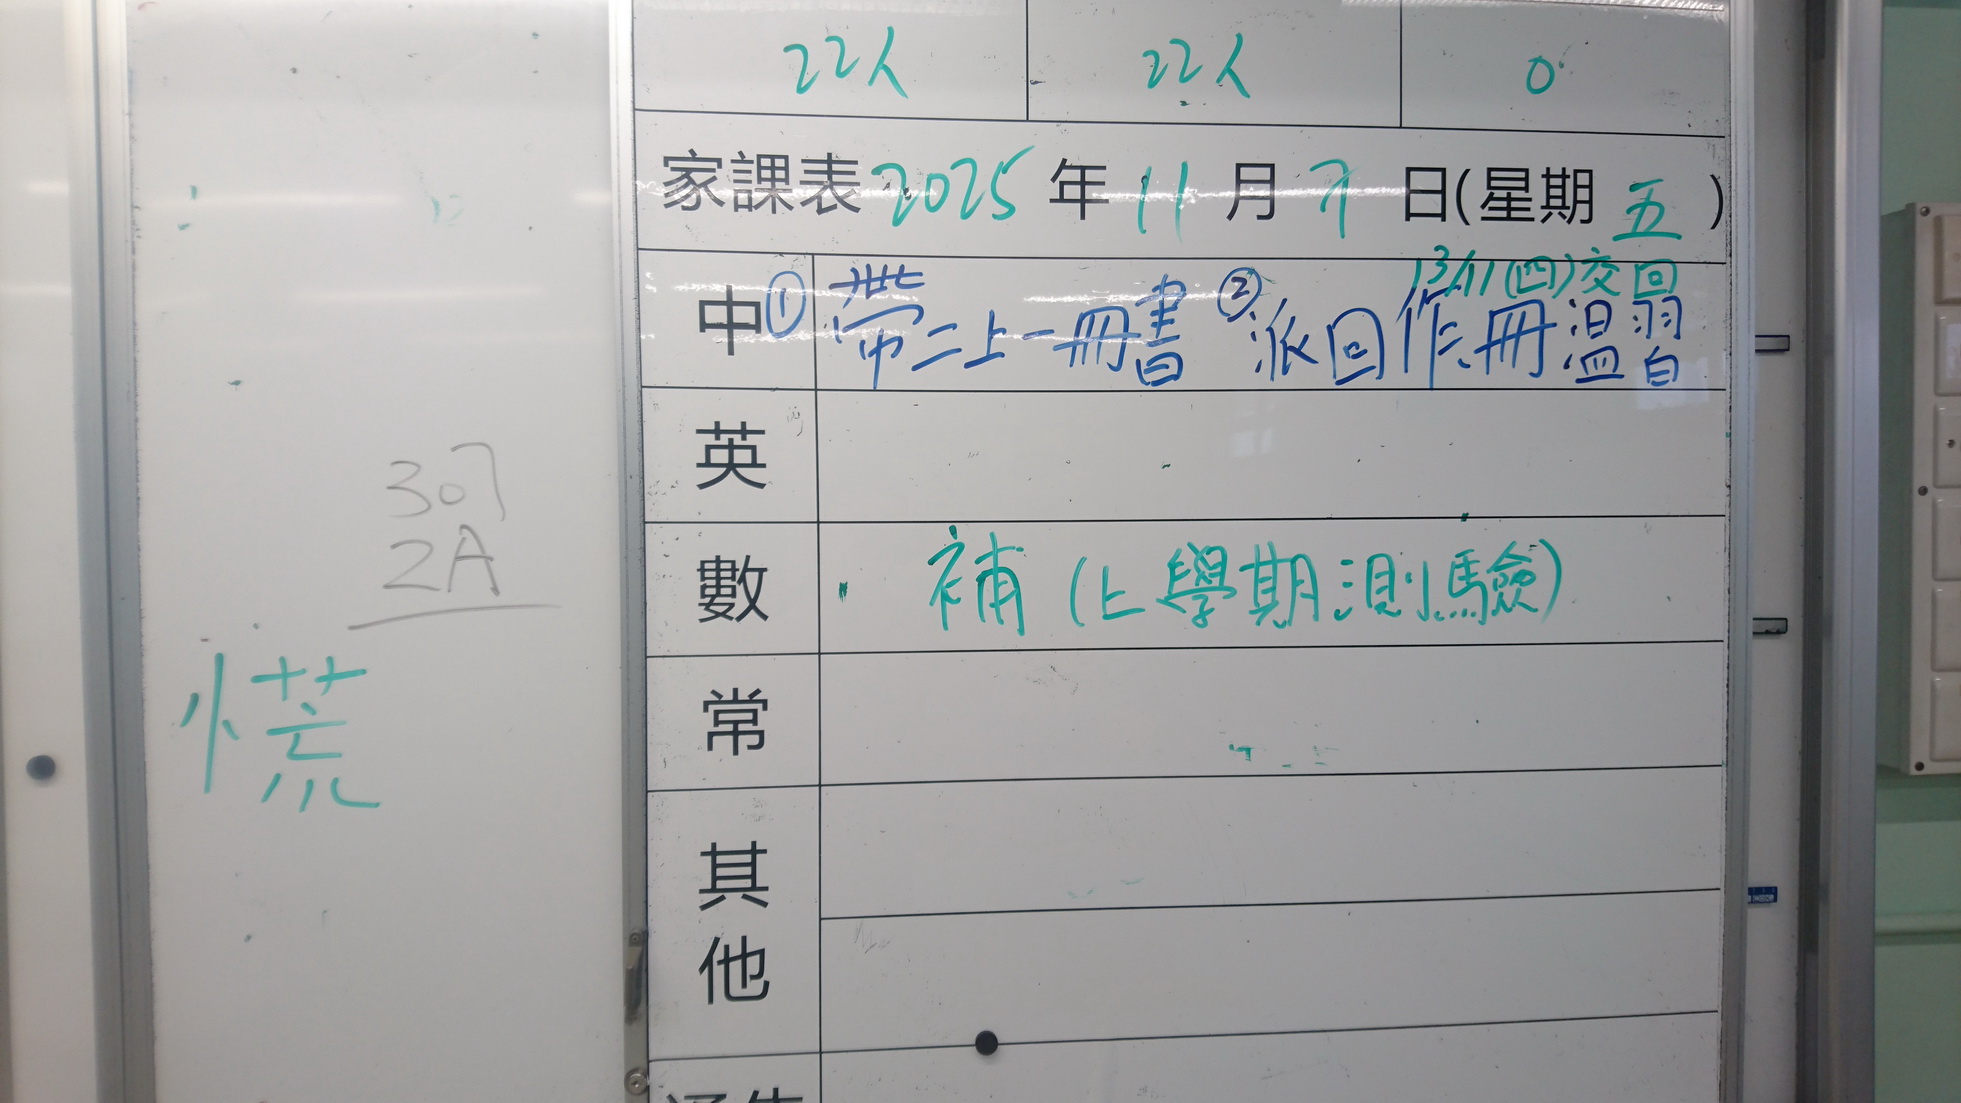 22人 22人 0
家課表 2025 年 11 月 7 日(星期 五 )
13/11(四)交回
中 ①帶二上一冊書 ②派回作冊溫習
英
數 補(上學期測驗)
常
其他
307
2A
慌